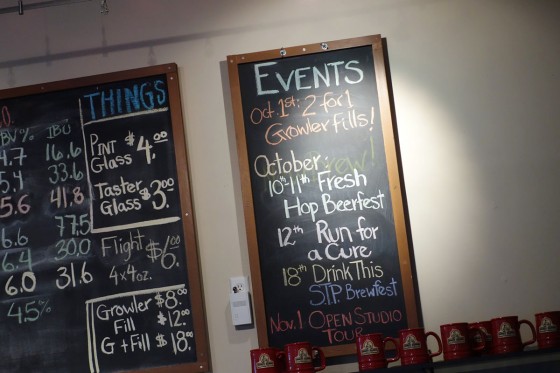 O.
BV% IBU
4.7 16.6
5.4 33.6
5.6 41.8
77.5
6.6
6.4 30.0
6.0 31.6
4.5%
THINGS
PINT GLASS $4.00
Taster Glass $3.00
Flight $6.00
4x4oz.
Growler $8.00
Fill $12.00
G+Fill $18.00
EVENTS
Oct. 1st: 2 for 1
Growler Fills!
October: Brew!
10th-11th Fresh
Hop Beerfest
12th Run for
a Cure
18th Drink This
S.T.P. Brewfest
Nov. 1 OPEN STUDIO
TOUR